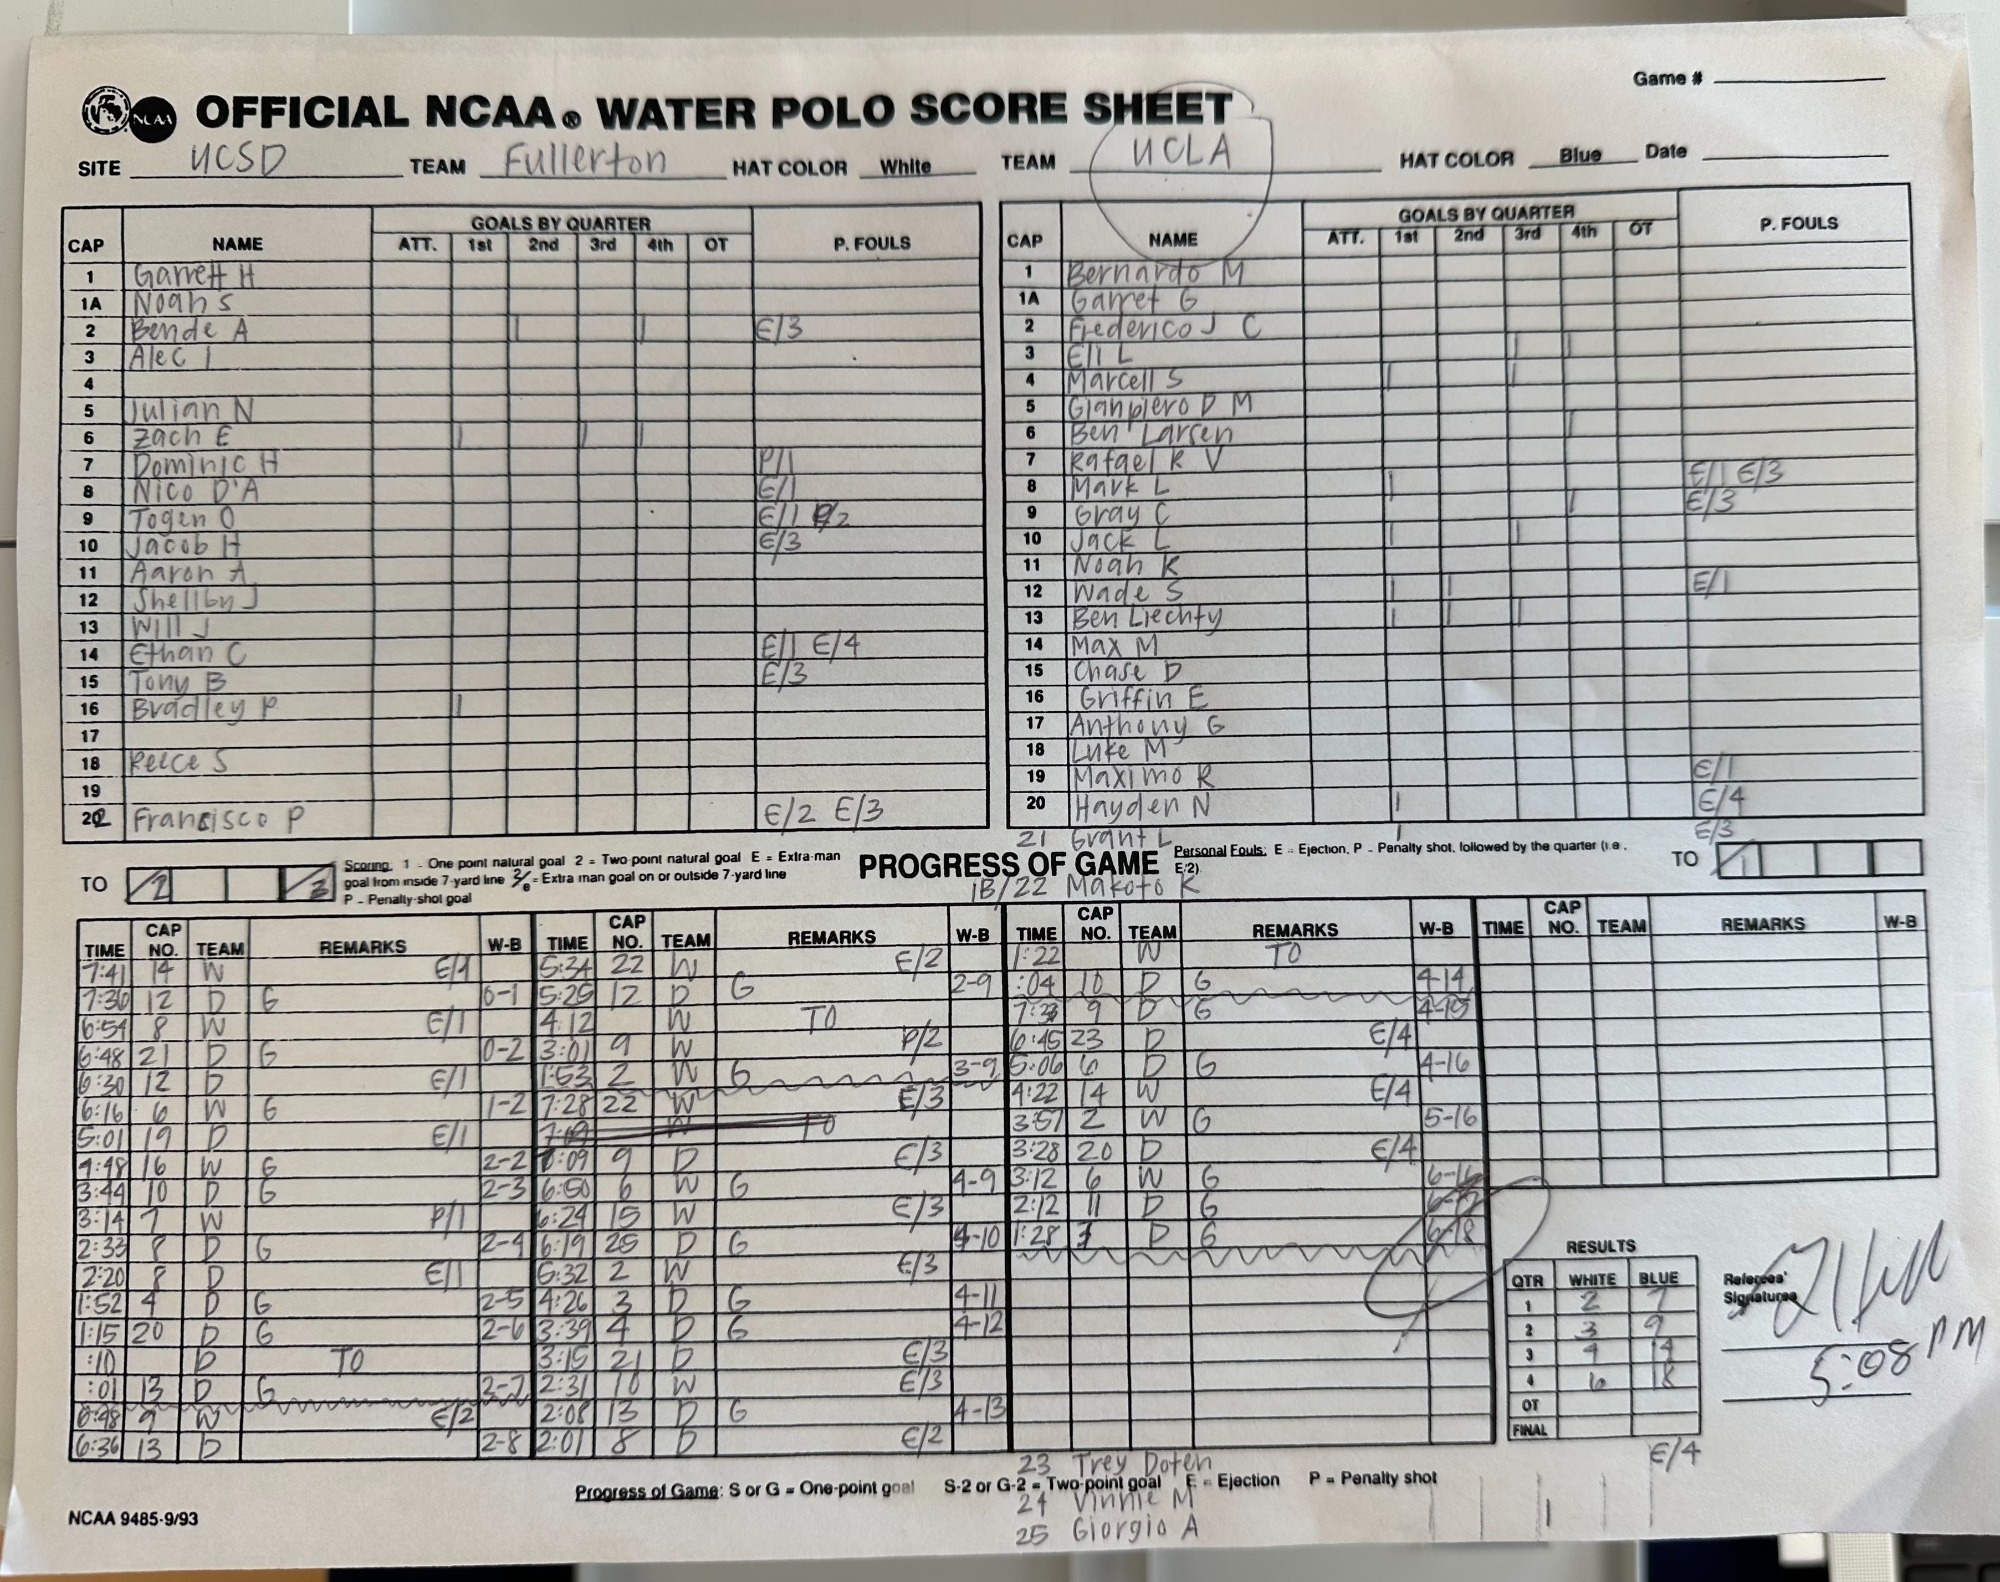 Game #
NCAA OFFICIAL NCAA® WATER POLO SCORE SHEET
SITE UCSD TEAM Fullerton HAT COLOR White TEAM UCLA HAT COLOR Blue Date
CAP NAME GOALS BY QUARTER P. FOULS
ATT. 1st 2nd 3rd 4th OT
1 Garrett H
1A Noah S
2 Bende A | | E/3
3 Alec I
4
5 Julian N
6 Zach E | | |
7 Dominic H P/1
8 Nico D'A E/1
9 Togen O E/1 P/2
10 Jacob H E/3
11 Aaron A
12 Shellby J
13 Will J
14 Ethan C E/1 E/4
15 Tony B E/3
16 Bradley P |
17
18 Reece S
19
22 Francisco P E/2 E/3
CAP NAME GOALS BY QUARTER P. FOULS
ATT. 1st 2nd 3rd 4th OT
1 Bernardo M
1A Garret G
2 Frederico J C
3 Eli L | |
4 Marcell S | |
5 Gianpiero D M
6 Ben Larsen |
7 Rafael R V
8 Mark L | E/1 E/3
9 Gray C | E/3
10 Jack L | |
11 Noah K
12 Wade S | | E/1
13 Ben Liechty | | |
14 Max M
15 Chase D
16 Griffin E
17 Anthony G
18 Luke M
19 Maximo R E/1
20 Hayden N | E/4
21 Grant L | E/3
TO 2 3
Scoring: 1 - One point natural goal 2 = Two-point natural goal E = Extra-man
goal from inside 7-yard line 2/e = Extra man goal on or outside 7-yard line
P - Penalty-shot goal
PROGRESS OF GAME
1B/22 Makoto K
Personal Fouls: E = Ejection, P - Penalty shot, followed by the quarter (i.e.
E/2)
TO 1
TIME CAP NO. TEAM REMARKS W-B
7:41 14 W E/1
7:36 12 D G 0-1
6:54 8 W E/1
6:48 21 D G 0-2
6:30 12 D E/1
6:16 6 W G 1-2
5:01 19 D E/1
4:48 16 W G 2-2
3:44 10 D G 2-3
3:14 7 W P/1
2:33 8 D G 2-4
2:20 8 D E/1
1:52 4 D G 2-5
1:15 20 D G 2-6
:10 D TO
:01 13 D G 2-7
6:48 9 W E/2
6:36 13 D 2-8
TIME CAP NO. TEAM REMARKS W-B
5:34 22 W E/2
5:25 12 D G 2-9
4:12 W TO
3:01 9 W P/2
1:53 2 W G 3-9
7:28 22 W E/3
W TO
7:09 9 D E/3
6:50 6 W G 4-9
6:24 15 W E/3
6:19 25 D G 4-10
5:32 2 W E/3
4:26 3 D G 4-11
3:39 4 D G 4-12
3:15 21 D E/3
2:31 10 W E/3
2:08 13 D G 4-13
2:01 8 D E/2
TIME CAP NO. TEAM REMARKS W-B
1:22 W TO
:04 10 D G 4-14
9 D G 4-15
6:45 23 D E/4
5:06 6 D G 4-16
4:22 14 W E/4
3:57 2 W G 5-16
3:28 20 D E/4
3:12 6 W G 6-16
2:12 11 D G 6-17
1:28 3 D G 6-18
TIME CAP NO. TEAM REMARKS W-B
RESULTS
QTR WHITE BLUE
1 2 7
2 3 9
3 4 14
4 6 18
OT
FINAL
Referees'
Signatures
5:08 PM
E/4
23 Trey Doten
Progress of Game: S or G = One-point goal S-2 or G-2 = Two-point goal E = Ejection P = Penalty shot
24 Vinnie M
25 Giorgio A |
NCAA 9485-9/93